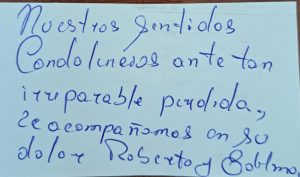 Nuestros sentidos
Condolencias ante tan
irreparable perdida,
le acompañamos en su
dolor Roberto y